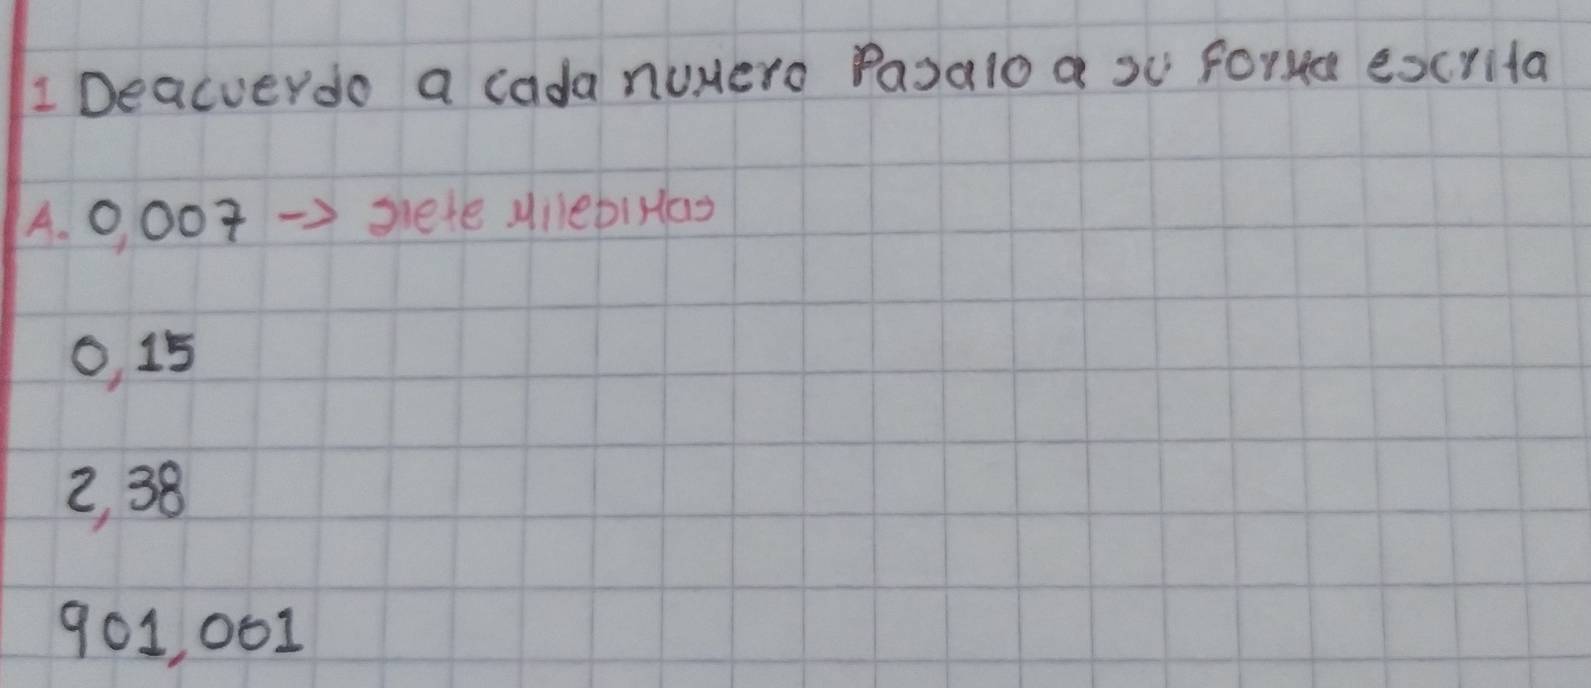 1 Deacuerdo a cada numero Pasalo a su forma escrita
A. 0,007 -> siete milesimas
0,15
2,38
901,001